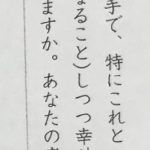 手で、特にこれと
なること)しつつ幸
ますか。あなたの